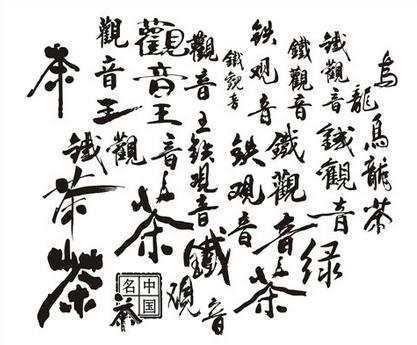 烏龍
烏龍茶
鐵觀音
鐵觀音
鐵觀音
鐵觀音
绿茶
铁观音
鐵觀音
铁观音
觀音王
铁观音
觀音王
觀音王
鐵觀音
鐵观音
茶
茶
茶
茶
中国名茶